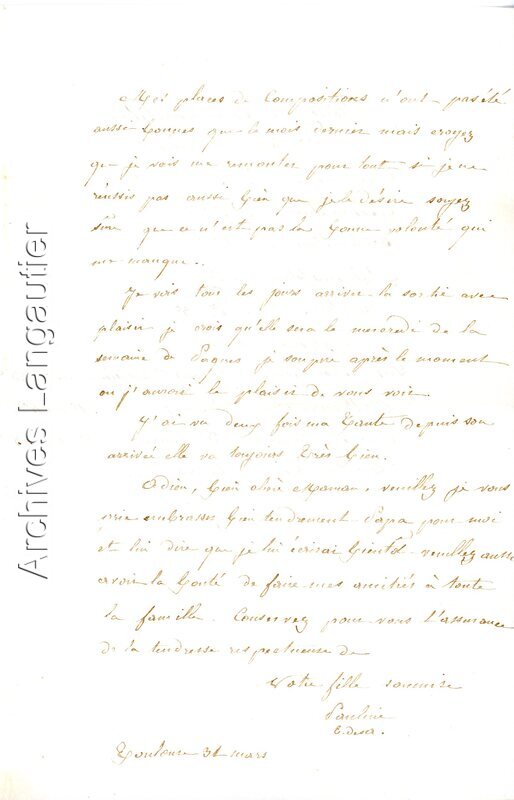 Mes places de Compositions n'ont pas été
aussi bonnes que le mois dernier mais croyez
que je vais me remonter pour tout si je ne
réussis pas aussi bien que je le désire soyez
sûre que ce n'est pas la bonne volonté qui
me manque..
Je vois tous les jours arriver la sortie avec
plaisir je crois qu'elle sera le mercredi de la
semaine de Pâques je soupire après le moment
ou j'aurai le plaisir de vous voir.
J'ai vu deux fois ma Tante depuis son
arrivée elle va toujours très bien.
Adieu, bien chère Maman, veuillez je vous
prie embrasser bien tendrement Papa pour moi
et lui dire que je lui écrirai bientôt veuillez aussi
avoir la bonté de faire mes amitiés à toute
la famille. Conservez pour vous l'assurance
de la tendresse respectueuse de
Votre fille soumise
Pauline
Toulouse 31 mars
Archives Langautier